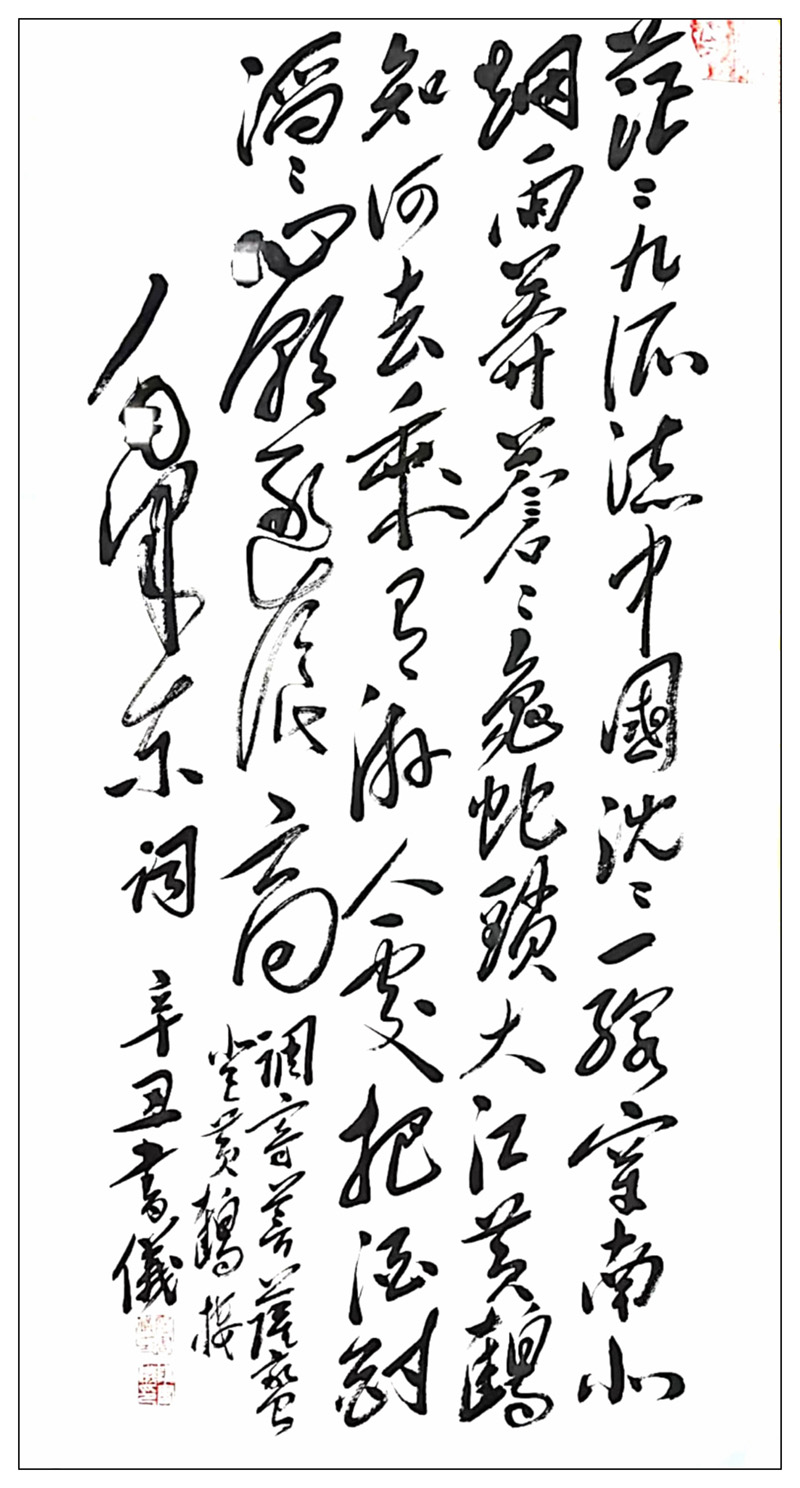 茫〻九派流中國沈〻一線穿南北
烟雨莽蒼〻龜蛇鎖大江黄鶴
知何去剩有游人處把酒酹
滔〻心潮逐浪高
调寄菩薩蠻
登黄鶴楼
毛澤东词 辛丑書儀